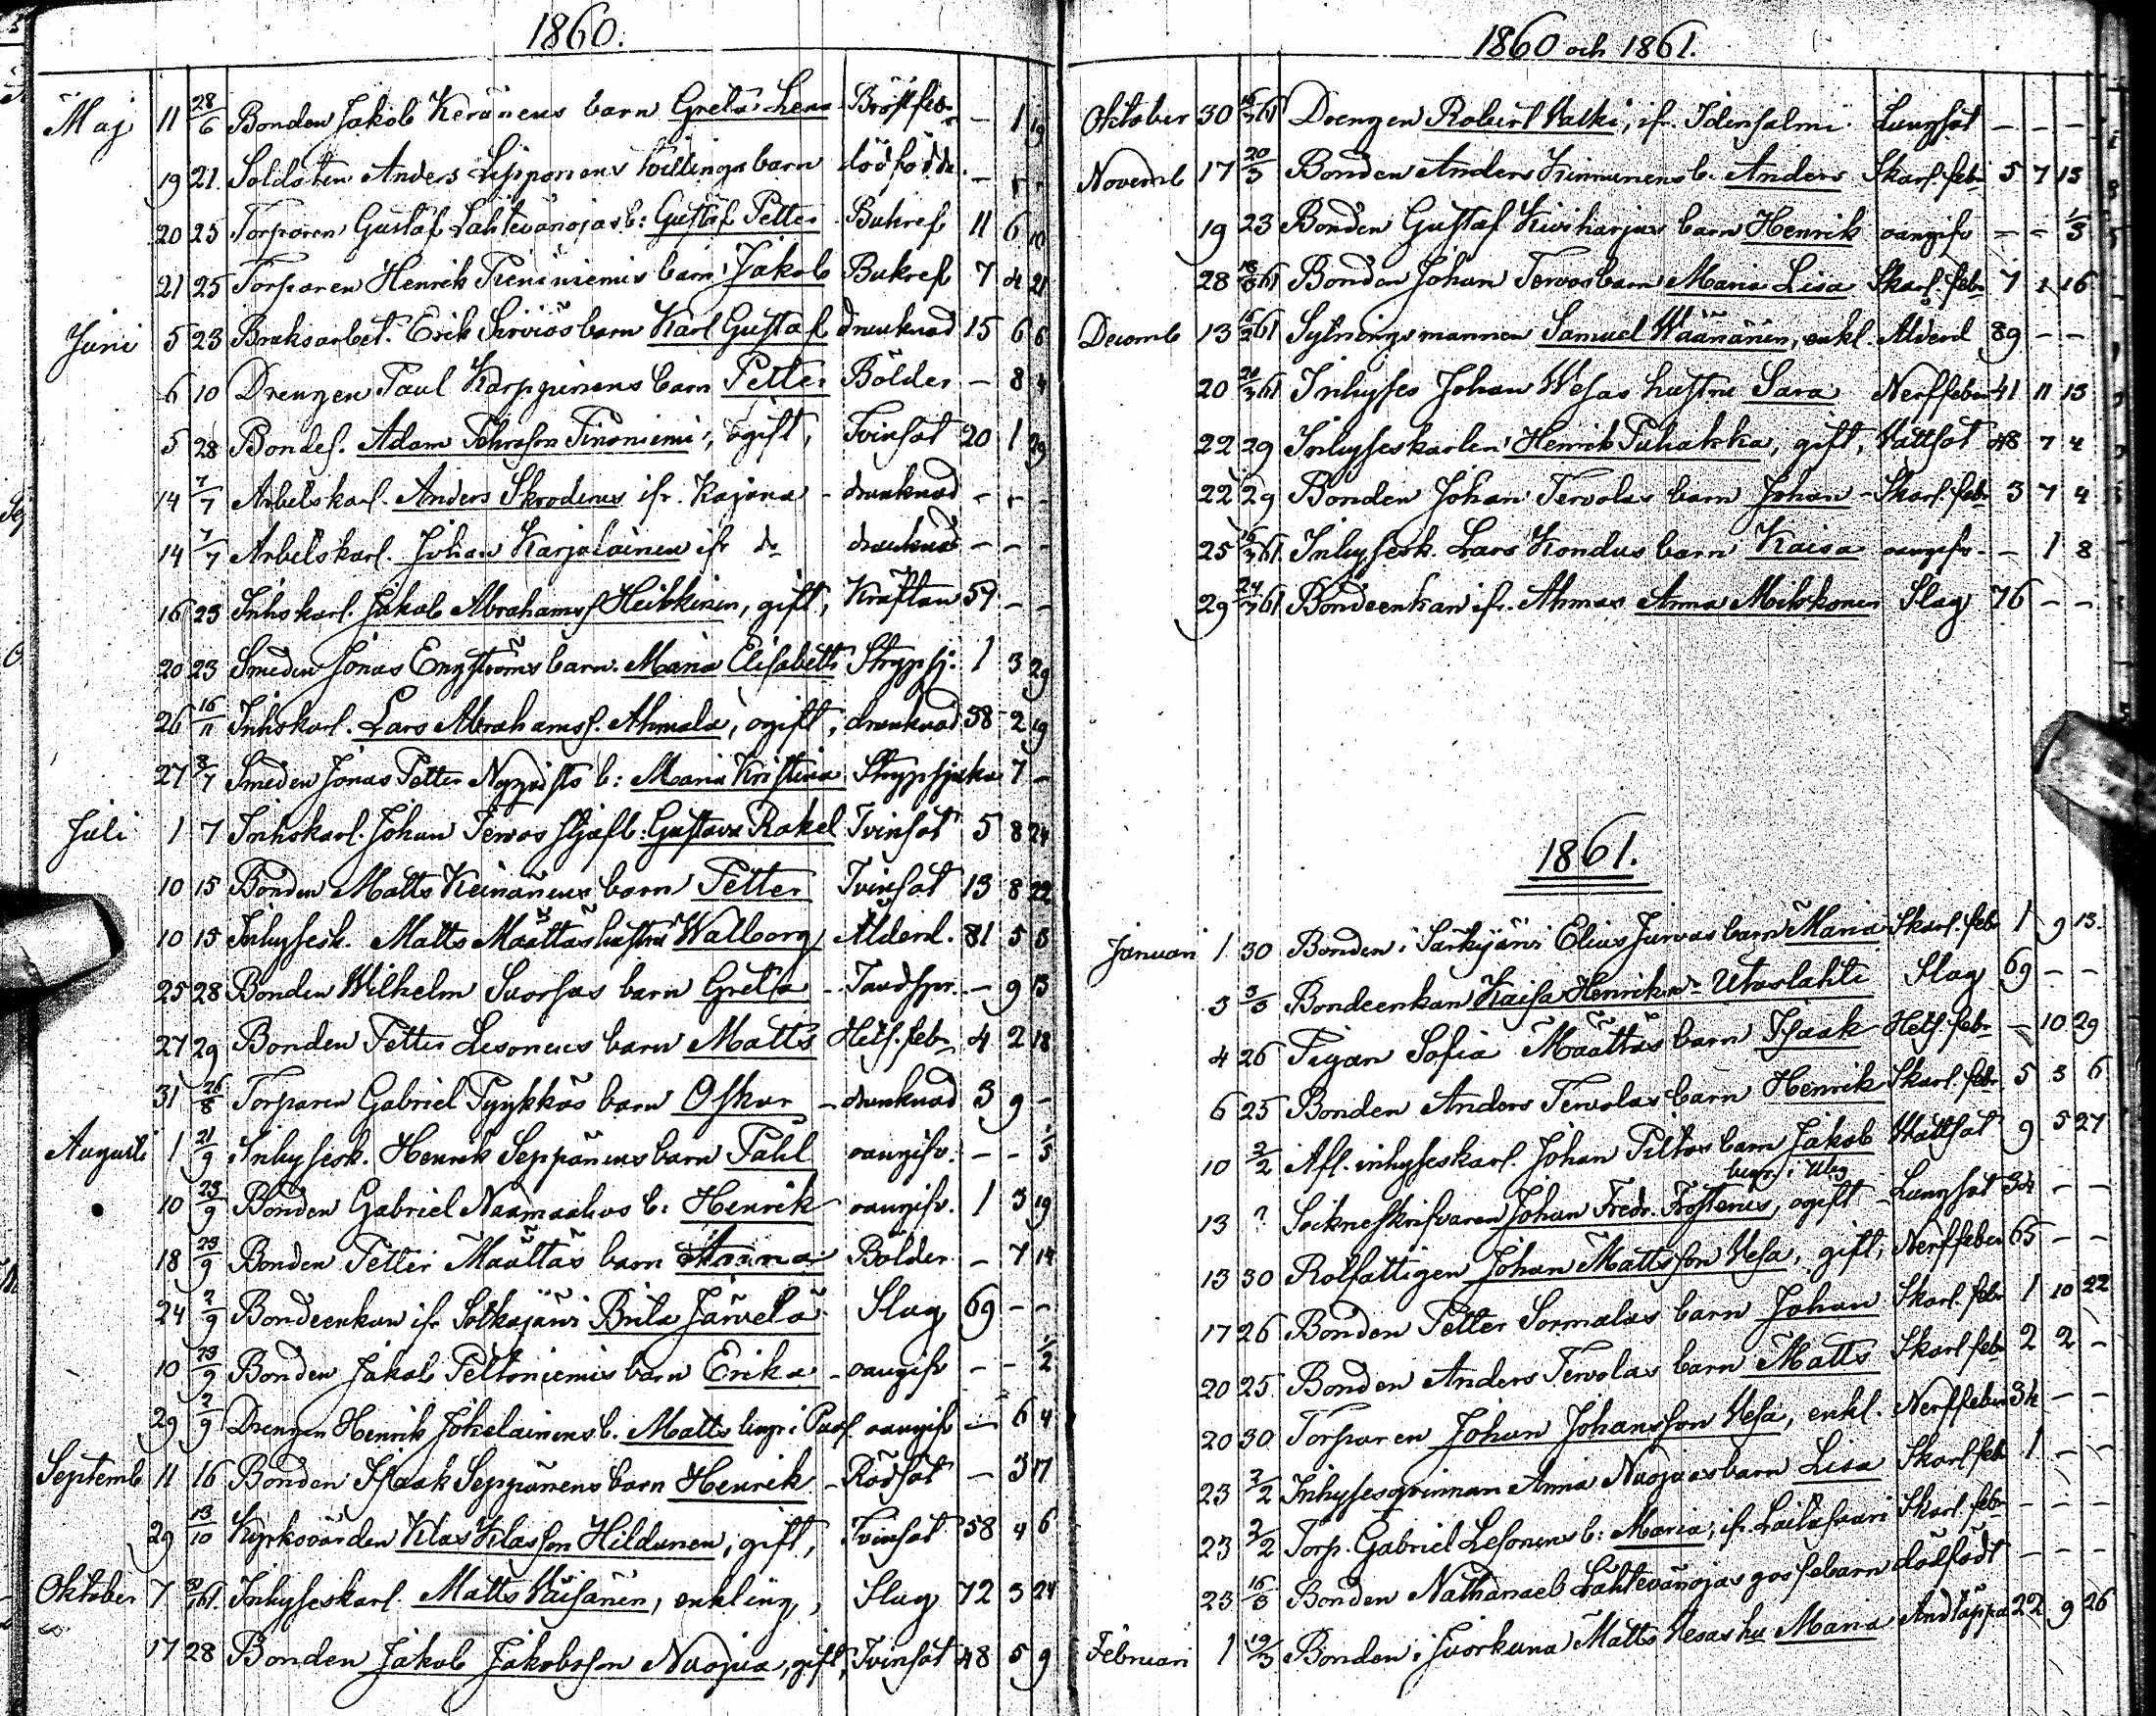 1860.
Maj 11 28/6 Bonden Jakob Keränens barn Greta Lena Bröstfeb. – 1 19
19 21. Soldaten Anders Lipponens tvillingabarn dödfödde. – – –
20 25 Torparen Gustaf Lahtevänojas b: Gustaf Petter Bukref 11 6 10
21 25 Torparen Henrik Pieniniemis barn Jakob Bukref 7 4 21
Juni 5 23 Bruksarbet. Erik Serviös barn Karl Gustaf drunknad 15 6 6
6 10 Drengen Paul Karppinens barn Petter Bölder – 8 4
5 28 Bondes. Adam Johansson Tinoniemi, ogift, Tvinsot 20 1 29
14 7/7 Arbetskarl. Anders Skroderus ifr. Kajana – drunknad – – –
14 7/7 Arbetskarl. Johan Karjalainen ifr do drunknad – – –
16 23 Inhskarl. Jakob Abrahamss. Heikkinen, gift, Kräftan 59 – –
20 23 Smeden Jonas Engströms barn Maria Elisabeth Strypsj. 1 3 29
26 16/11 Inhskarl. Lars Abrahamss. Ahmala, ogift, drunknad 38 2 19
27 8/7 Smeden Jonas Petter Nyqvists b: Maria Kristina Strypsjuka 7 –
Juli 1 7 Inhskarl. Johan Tervos stjufb: Gustava Rakel Tvinsot 5 8 24
10 15 Bonden Matts Keinänens barn Petter Tvinsot 13 8 22
10 15 Inhysesk. Matts Määttäs hustru Walborg Ålderd. 81 5 5
25 28 Bonden Wilhelm Suorsas barn Greta – Tandspr. – 9 13
27 29 Bonden Petter Lesonens barn Matts Hets. febr 4 2 18
31 26/8 Torparen Gabriel Pyykkös barn Oskar – drunknad 3 9 –
Augusti 1 21/9 Inhysesk. Henrik Seppänens barn Pahl oangifv. – – 1/5
10 23/9 Bonden Gabriel Naamankas b: Henrik oangifv. 1 3 19
18 23/9 Bonden Petter Määttäs barn Anna Bölder – 7 14
24 2/9 Bondeenkan ifr Sotkajärvi Brita Järvelä Slag 69 – –
10 23/9 Bonden Jakob Peltoniemis barn Erika – oangifv – – 1/2
29 2/9 Drengen Henrik Jokelainens b. Matts begr i oangifv – 6 4
Septemb 11 16 Bonden Isaak Seppänens barn Henrik – Rödsot – 3 17
29 13/10 Kyrkovärden Klas Klasson Hildunen, gift, Tvinsot 58 4 6
Oktober 7 3/61. Inhyseskarl. Matts Väisänen, enkling, Slag 72 3 24
17 28 Bonden Jakob Jakobsson Nuojua, gift, Tvinsot 48 5 9
1860 och 1861.
Oktober 30 61 Drengen Robert Valki, ifr. Idensalmi Lungsot – – –
Novemb 17 20/3 Bonden Anders Kinnunens b. Anders Skarl. febr 5 7 15
19 23 Bonden Gustaf Kiviharjus barn Henrik oangifv – – 1/3
28 61 Bonden Johan Tervos barn Maria Lisa Skarl. febr 7 1 16
Decemb 13 61 Sytningsmannen Samuel Väänänen, enkl. Ålderd 89 – –
20 61 Inhyses Johan Wesas hustru Sara Nerffeber 41 11 13
22 29 Inhyseskarlen Henrik Puhakka, gift, Vattsot 48 7 4
22 29 Bonden Johan Tervolas barn Johan – Skarl. febr 3 7 4
25 61. Inhysesk. Lars Kondus barn Kaisa oangifv. – 1 8
29 61 Bondeenkan ifr. Ahmas Anna Mikkonen Slag 76 – –
1861.
Januari 1 30 Bonden i Särkijärvi Elias Jurvas barn Maria Skarl. febr 1 9 13.
3 3/3 Bondeenkan Kaisa Henriksdr Utoslahti Slag 69 – –
4 26 Pigan Sofia Määttäs barn Isaak Hets. febr – 10 29
6 25 Bonden Anders Tervolas barn Henrik Skarl. febr 5 3 6
10 2/2 Afl. inhyseskarl. Johan Piltos barn Jakob Vattsot 9 5 27
begr. i Ulbg
13 ? Sockneskrifvaren Johan Fredr. Frosterus, ogift – Lungsot 34 – –
13 30 Rotfattigen Johan Mattsson Vesa, gift, Nerffeber 65 – –
17 26 Bonden Petter Sormalas barn Johan Skarl. febr 1 10 22
20 25 Bonden Anders Tervolas barn Matts Skarl febr 2 2 –
20 30 Torparen Johan Johansson Vesa, enkl. Nerffeber 34 – –
23 2/2 Inhysesqvinnan Anna Nuojuas barn Lisa Skarl febr 1 – –
23 2/2 Torp. Gabriel Lesonens b: Maria, ifr. Skarl. febr – – –
23 16/3 Bonden Nathanael Lahtevänojas gossebarn dödfödt – – –
Februari 1 19/3 Bonden i Juorkuna Matts Vesas hu Maria Andtäppa 22 9 26